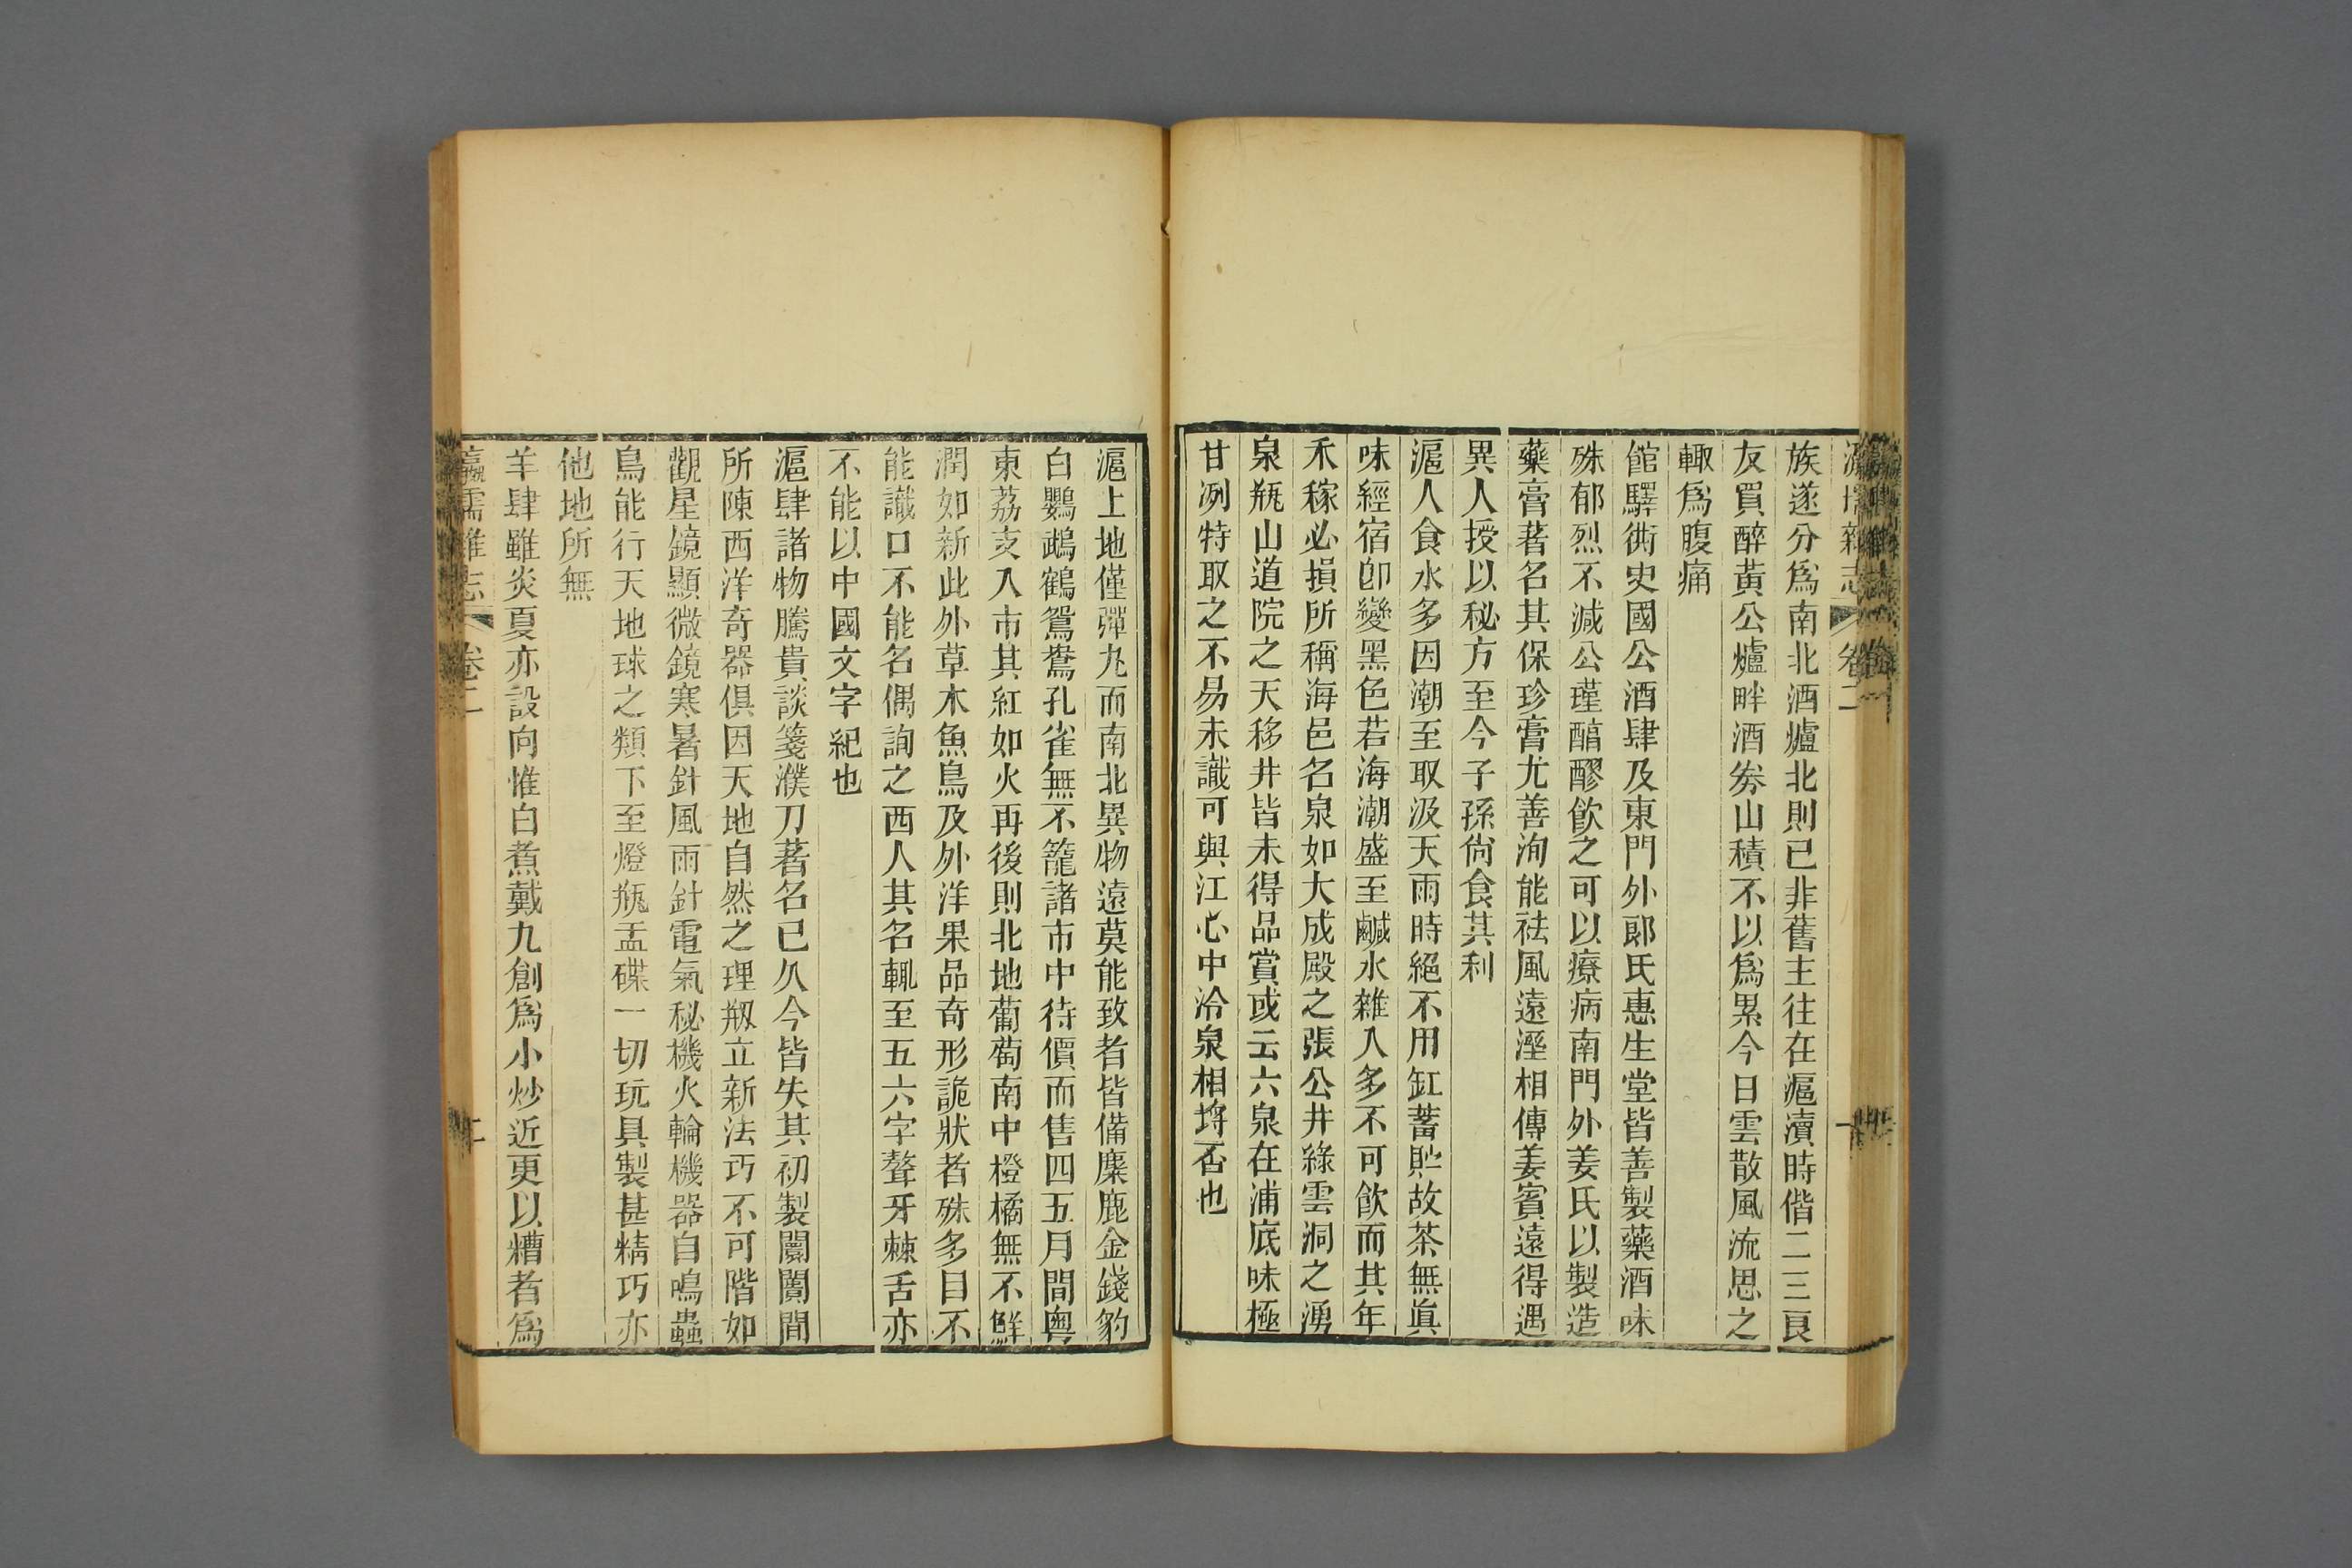 瀛壖雜志 卷二
族遂分爲南北酒爐北則已非舊主往在滬瀆時偕二三良
友買醉黃公爐畔酒券山積不以爲累今日雲散風流思之
輙爲腹痛
館驛衖史國公酒肆及東門外郞氏惠生堂皆善製藥酒味
殊郁烈不減公瑾醕醪飮之可以療病南門外姜氏以製造
藥膏著名其保珍膏尤善洵能祛風遠溼相傳姜賓遠得遇
異人授以秘方至今子孫尙食其利
滬人食水多因潮至取汲天雨時絕不用缸蓄貯故茶無眞
味經宿卽變黑色若海潮盛至鹹水雜入多不可飮而其年
禾稼必損所稱海邑名泉如大成殿之張公井綠雲洞之湧
泉瓶山道院之天移井皆未得品賞或云六泉在浦底味極
甘冽特取之不易未識可與江心中泠泉相埒否也
滬上地僅彈丸而南北異物遠莫能致者皆備麋鹿金錢豹
白鸚鵡鶴鴛鴦孔雀無不籠諸市中待價而售四五月間粤
東荔支入市其紅如火再後則北地葡萄南中橙橘無不鮮
潤如新此外草木魚鳥及外洋果品奇形詭狀者殊多目不
能識口不能名偶詢之西人其名輒至五六字聱牙棘舌亦
不能以中國文字紀也
滬肆諸物騰貴談箋濮刀著名已久今皆失其初製闤闠間
所陳西洋奇器俱因天地自然之理剏立新法巧不可階如
觀星鏡顯微鏡寒暑針風雨針電氣秘機火輪機器自鳴蟲
鳥能行天地球之類下至燈瓶盂碟一切玩具製甚精巧亦
他地所無
羊肆雖炎夏亦設向惟白煮戴九創爲小炒近更以糟者爲
瀛壖雜志 卷二